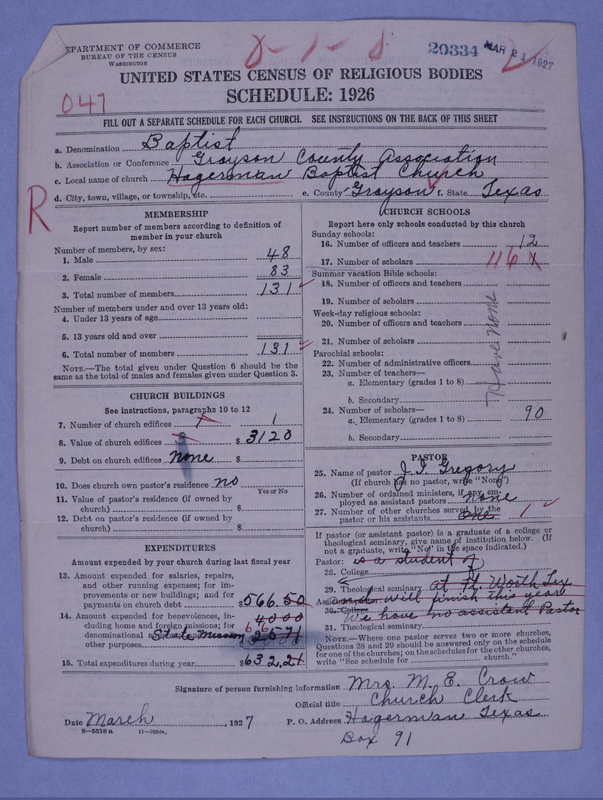 DEPARTMENT OF COMMERCE
BUREAU OF THE CENSUS
WASHINGTON
20334 MAR 21 1927
UNITED STATES CENSUS OF RELIGIOUS BODIES
SCHEDULE: 1926
047
FILL OUT A SEPARATE SCHEDULE FOR EACH CHURCH. SEE INSTRUCTIONS ON THE BACK OF THIS SHEET
a. Denomination Baptist
b. Association or Conference Grayson County Association
c. Local name of church Hagerman Baptist Church
d. City, town, village, or township, etc. e. County Grayson f. State Texas
R
MEMBERSHIP
Report number of members according to definition of
member in your church
Number of members, by sex:
1. Male 48
2. Female 83
3. Total number of members 131
Number of members under and over 13 years old:
4. Under 13 years of age
5. 13 years old and over
6. Total number of members 131
NOTE.—The total given under Question 6 should be the
same as the total of males and females given under Question 3.
CHURCH BUILDINGS
See instructions, paragraphs 10 to 12
7. Number of church edifices 1
8. Value of church edifices $ 3120
9. Debt on church edifices none $
10. Does church own pastor's residence? no
Yes or No
11. Value of pastor's residence (if owned by
church) $
12. Debt on pastor's residence (if owned by
church) $
EXPENDITURES
Amount expended by your church during last fiscal year
13. Amount expended for salaries, repairs,
and other running expenses; for im-
provements or new buildings; and for
payments on church debt $566.50
14. Amount expended for benevolences, in-
cluding home and foreign missions; for
denominational
State Mission 2571
other purposes
4000
15. Total expenditures during year $632.21
CHURCH SCHOOLS
Report here only schools conducted by this church
Sunday schools:
16. Number of officers and teachers 12
17. Number of scholars 116
Summer vacation Bible schools:
18. Number of officers and teachers
19. Number of scholars
Week-day religious schools:
20. Number of officers and teachers
21. Number of scholars
Have none
Parochial schools:
22. Number of administrative officers
23. Number of teachers—
a. Elementary (grades 1 to 8)
b. Secondary
24. Number of scholars—
a. Elementary (grades 1 to 8) 90
b. Secondary
PASTOR
25. Name of pastor J. I. Gregory
(If church has no pastor, write "None")
26. Number of ordained ministers, if any, em-
ployed as assistant pastors none
27. Number of other churches served by the
pastor or his assistants one 1
If pastor (or assistant pastor) is a graduate of a college or
theological seminary, give name of institution below. (If
not a graduate, write "No" in the space indicated.)
Pastor: is a student of
28. College
29. Theological seminary at Ft Worth Tex
and will finish this year
30. College
We have no assistant Pastor
31. Theological seminary
NOTE.—Where one pastor serves two or more churches,
Questions 28 and 29 should be answered only on the schedule
for one of the churches; on the schedules for the other churches,
write "See schedule for church."
Signature of person furnishing information Mrs. M. E. Crow
Official title Church Clerk
Date March 1927 P. O. Address Hagerman Texas
Box 91
8-5518a